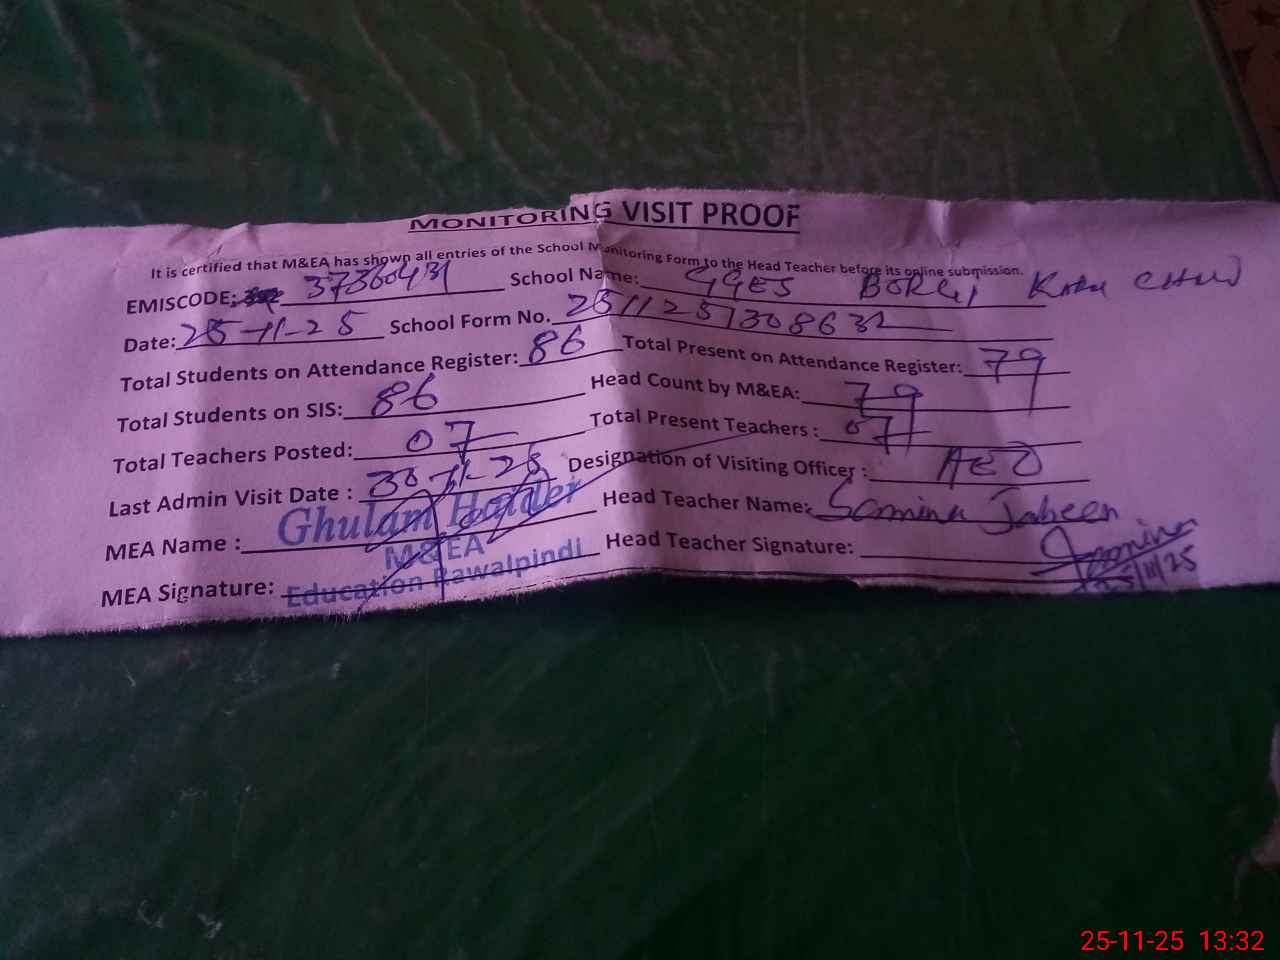 MONITORING VISIT PROOF
It is certified that M&EA has shown all entries of the School Monitoring Form to the Head Teacher before its online submission.
EMISCODE: 37360431 School Name: GGES BORGI
Date: 25-11-25 School Form No. 251125130863
Total Students on Attendance Register: 86 Total Present on Attendance Register: 79
Total Students on SIS: 86 Head Count by M&EA: 79
Total Teachers Posted: 07 Total Present Teachers : 07
Last Admin Visit Date : Designation of Visiting Officer : AEO
MEA Name : Ghulam Haider Head Teacher Name: Samina Jabeen
M&EA
MEA Signature: Education Rawalpindi Head Teacher Signature: Samina
25/11/25
25-11-25 13:32